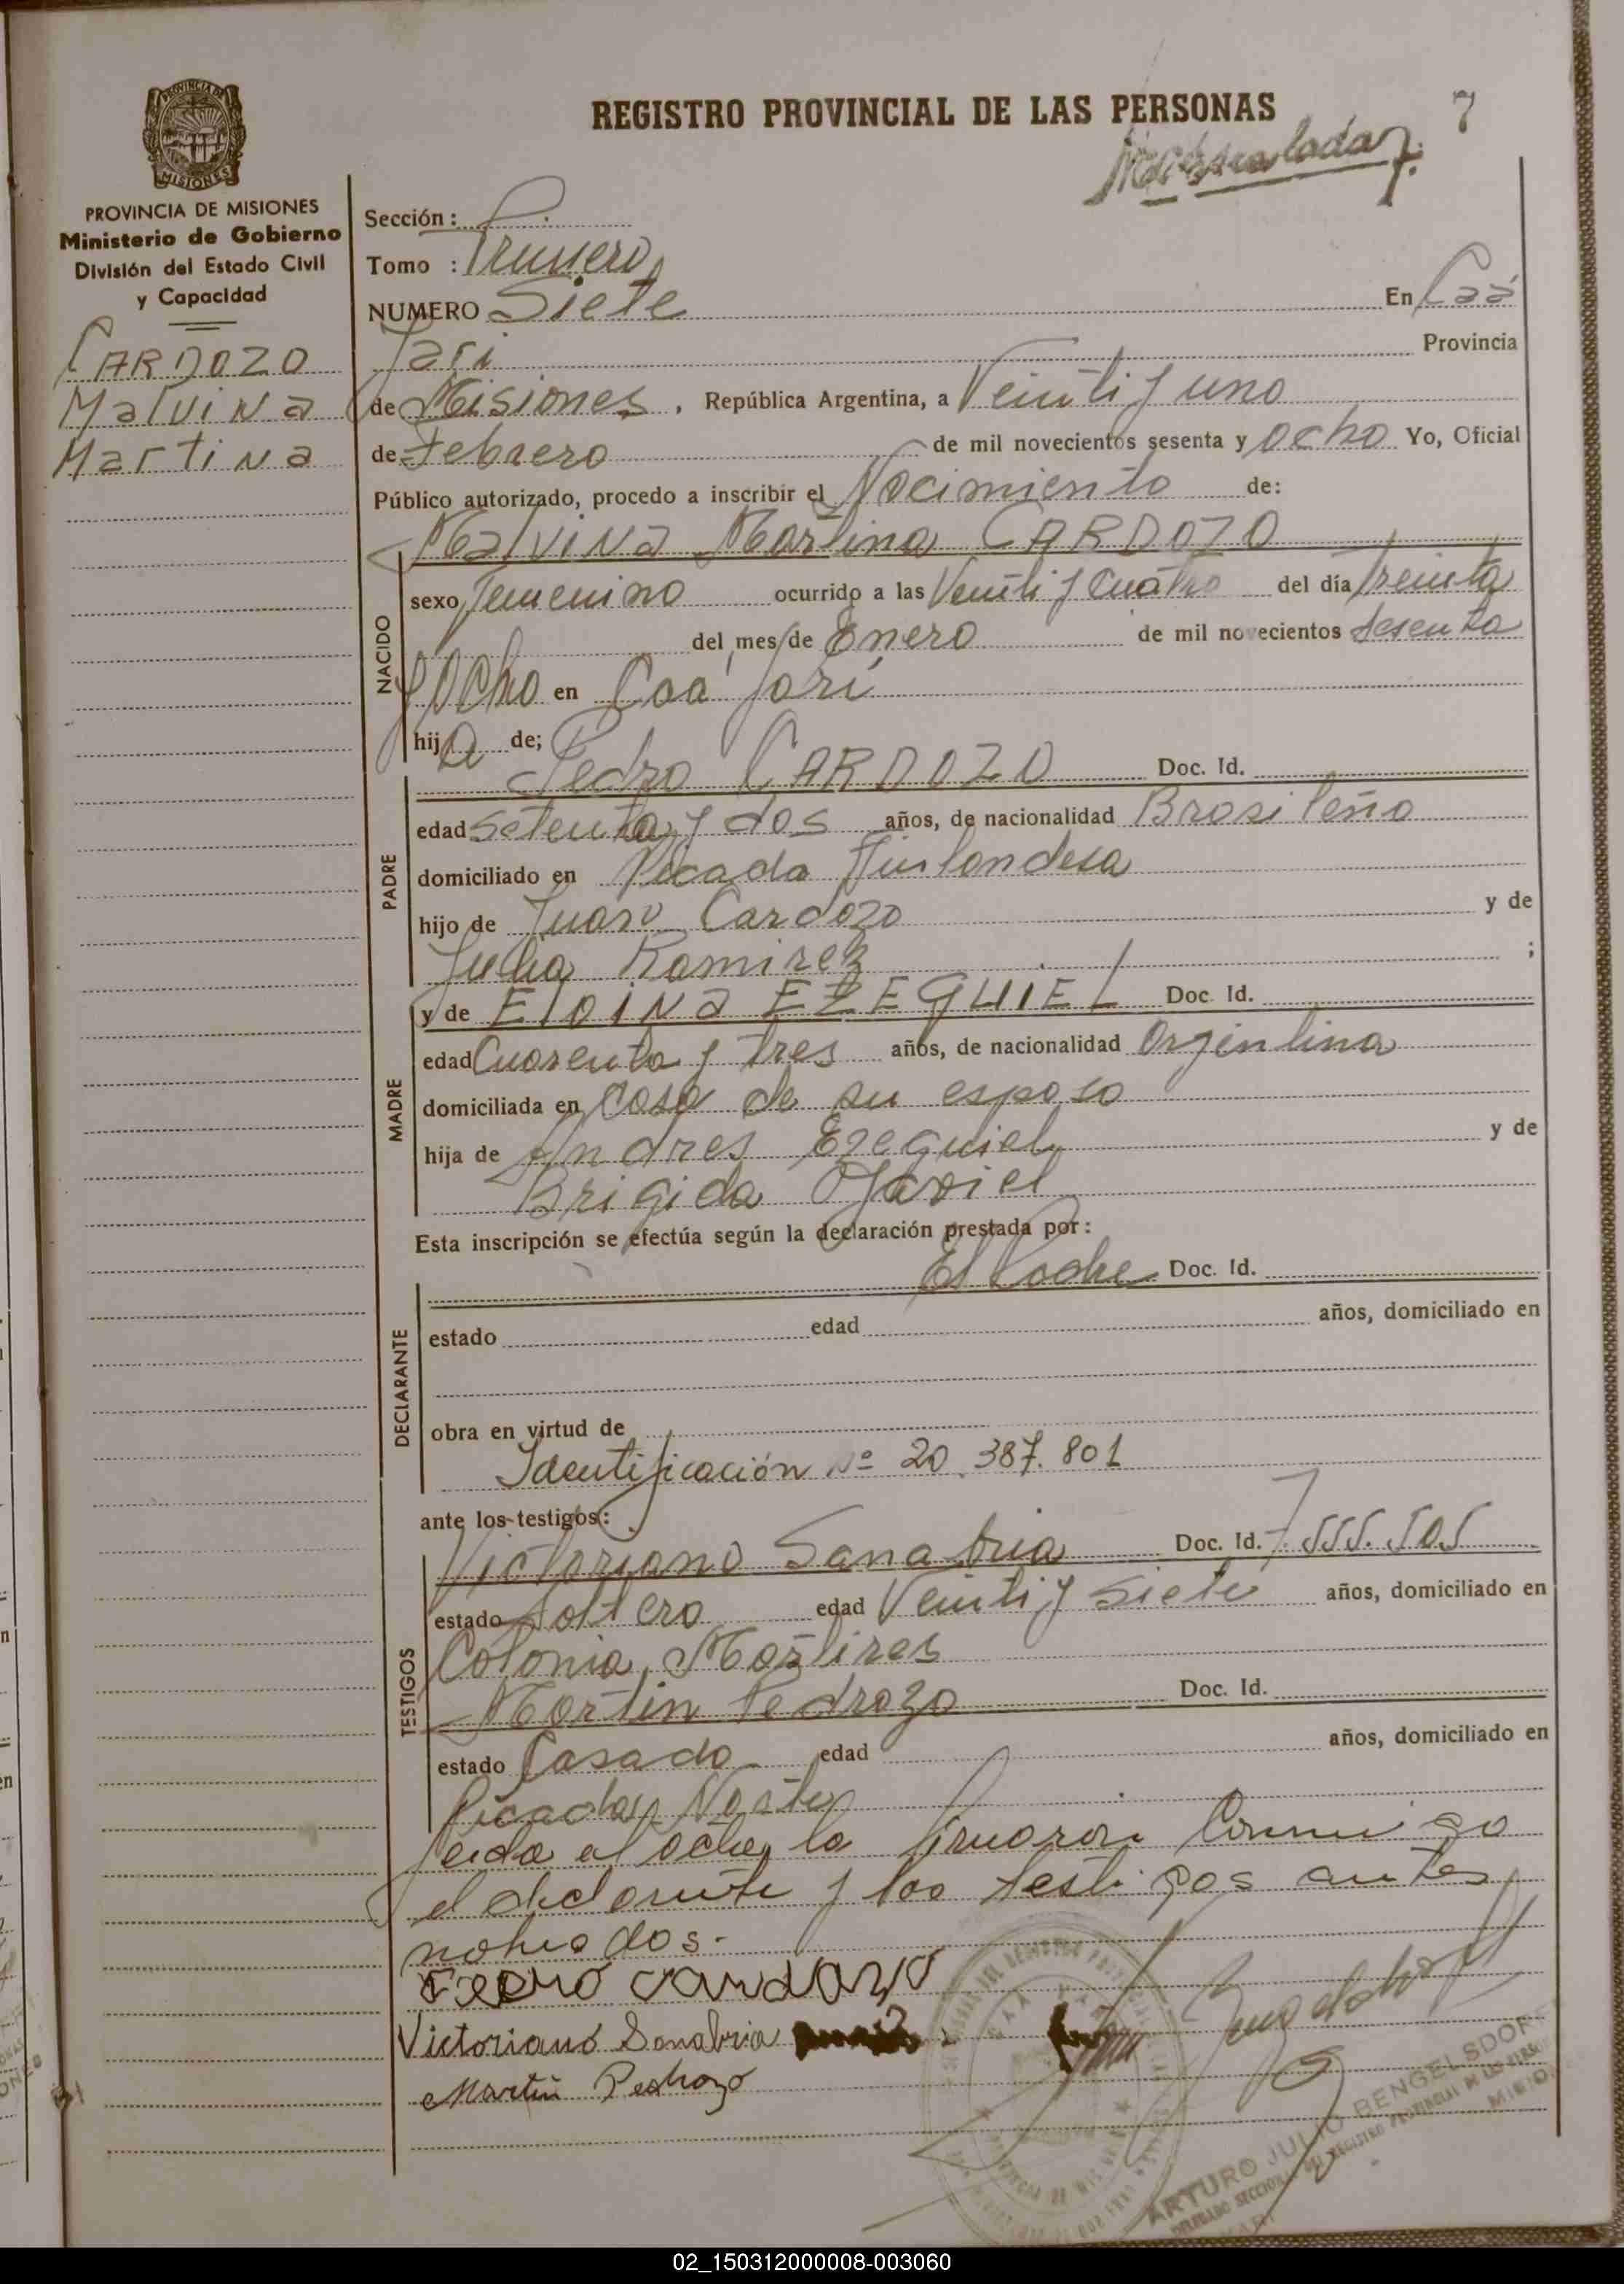 REGISTRO PROVINCIAL DE LAS PERSONAS
7
PROVINCIA DE MISIONES
Ministerio de Gobierno
División del Estado Civil
y Capacidad
CARDOZO
Malvina
Martina
Sección:
Tomo : Primero
NUMERO Siete En Caá
Yari Provincia
de Misiones. República Argentina, a Veinti y uno
de Febrero de mil novecientos sesenta y ocho Yo, Oficial
Público autorizado, procedo a inscribir el Nacimiento de:
Malvina Martina CARDOZO
NACIDO
sexo Femenino ocurrido a las Veinti y Cuatro del día Treinta
del mes de Enero de mil novecientos sesenta
y Ocho en Caá Yari
hija de;
PADRE
Pedro CARDOZO Doc. Id.
edad Setenta y dos años, de nacionalidad Brasileño
domiciliado en Picada Finlandesa
hijo de Juan Cardozo y de
Julia Ramirez ;
MADRE
y de Eloina EZEQUIEL Doc. Id.
edad Cuarenta y tres años, de nacionalidad Argentina
domiciliada en Casa de su esposo
hija de Andres Ezequiel y de
Brigida
Esta inscripción se efectúa según la declaración prestada por:
DECLARANTE
El Padre Doc. Id.
estado edad años, domiciliado en
obra en virtud de
Identificación Nº 20.387.801
ante los testigos:
TESTIGOS
Victoriano Sanabria Doc. Id. 7.555.505
estado Soltero edad Veinti y Siete años, domiciliado en
Colonia Mártires
Martin Pedrozo Doc. Id.
estado Casado edad años, domiciliado en
Picada Norte
Leida el acta, la firmaron Conmigo
el declarante y los testigos antes
nombrados.-
Pedro Cardozo
Victoriano Sanabria
Martin Pedrozo
ARTURO JULIO BENGELSDORF
02_150312000008-003060